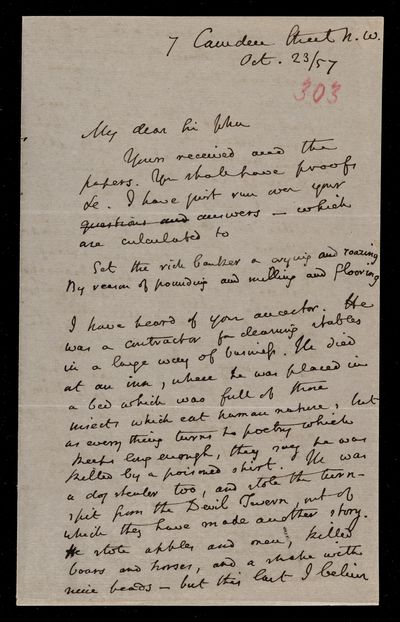 7 Camden Street N.W.
Oct. 23/57
303
My dear Sir John
Yours received and the
papers. You shall have proofs
&c. I have just run over your
questions and answers — which
are calculated to
Set the rich banker a crying and roaring
By reason of pounding and milling and flooring
I have heard of your ancestor. He
was a contractor for cleaning stables
in a large way of business. He died
at an inn, where he was placed in
a bed which was full of those
insects which eat human nature, but
as every thing turns to poetry which
keeps long enough, they say he was
killed by a poisoned shirt. He was
a dog stealer too, and stole the turn-
spit from the Devil Tavern, out of
which they have made another story.
He stole apples and oxen, killed
boars and horses, and a snake with
nine heads — but this last I believe